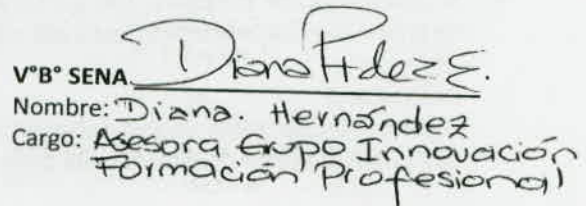 V°B° SENA Diana Hdez E.
Nombre: Diana. Hernández
Cargo: Asesora Grupo Innovación
Formación Profesional